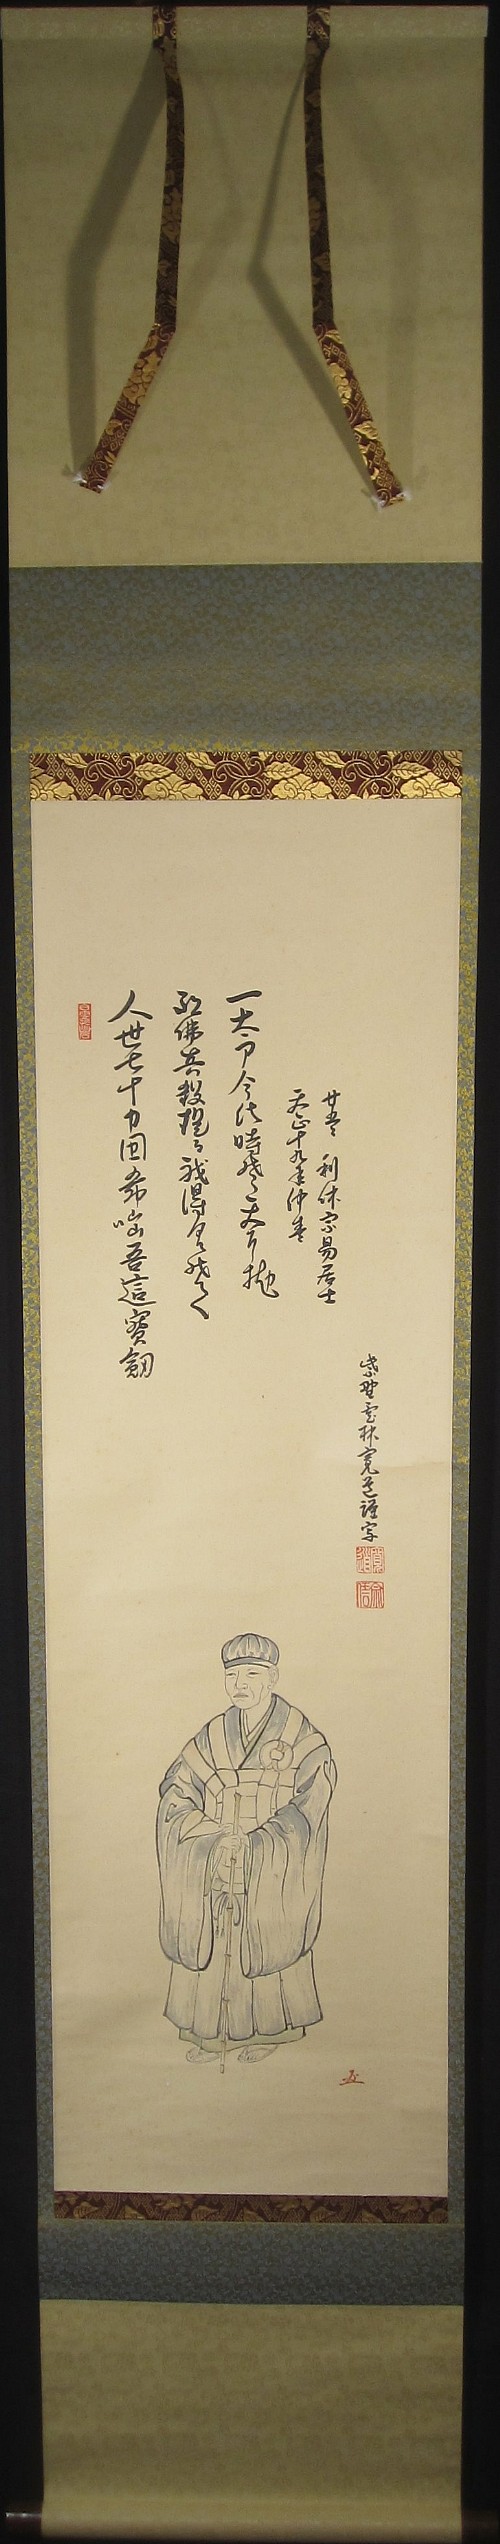 人世七十力囲希咄吾這寶劔
祖佛共殺提る我得具足の
一太刀今此時そ天に抛
天正十九年仲春
廿五日 利休宗易居士
紫野雲林寛道謹写
寛道